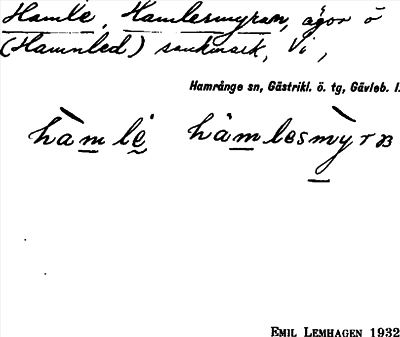 Hamle, Hamlesmyran, ägor å
(Hamnled) sankmark, Vi,
Hamrånge sn, Gästrikl. ö. tg, Gävleb. l.
hàmlė hȧmlesmỳrʙ
EMIL LEMHAGEN 1932